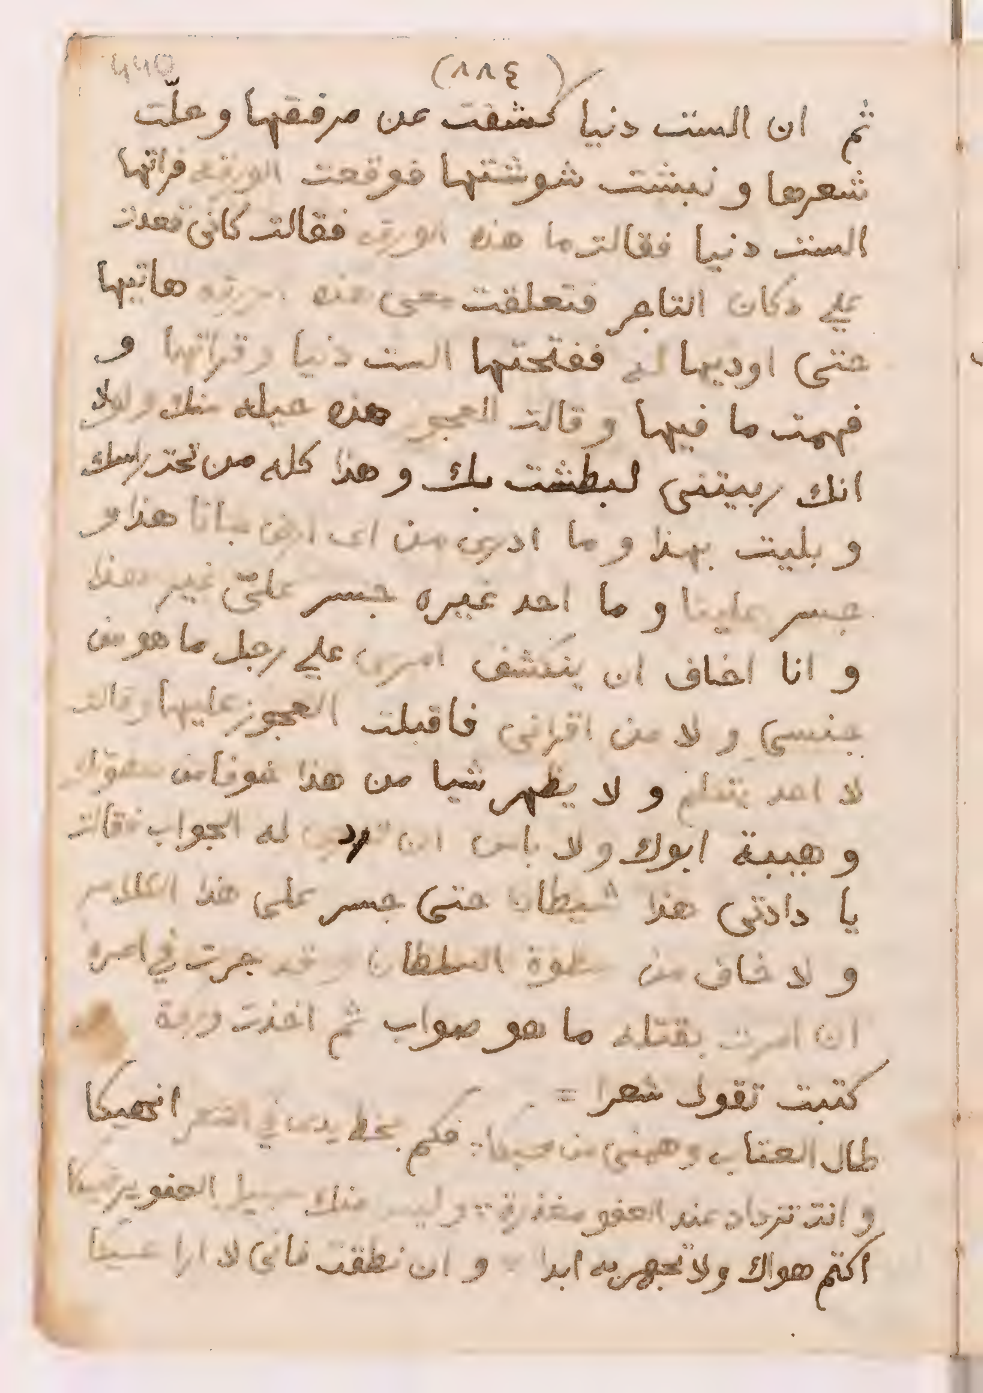 440 (٨٨٤)
ثم ان الست دنيا كشفت عن مرفقها وحلّت
شعرها ونبشت شوشتها فوقعت الورقه فراتها
الست دنيا فقالت ما هذه الورقه فقالت كانى قعدت
علي دكان التاجر فتعلقت معى هذه الورقه هاتيها
حتى اوديها له ففتحتها الست دنيا وقراتها و
فهمت ما فيها وقالت للعجوز هذه حيله منك ولولا
انك ربيتنى لبطشت بك وهذا كله من تحت راسك
وبليت بهذا وما ادرى من اى ارض جانا هذا و
جسر علينا وما احد غيره جسر عليّ غير هذا
وانا اخاف ان ينكشف امرى علي رجل ما هو من
جنسي ولا من اقرانى فاقبلت العجوز عليها وقالت
لا احد يتكلم ولا يظهر شيا من هذا خوفا من سطوتك
وهيبة ابوك ولا باس ان تردى له الجواب فقالت
يا دادتى هذا شيطان حتى جسر على هذا الكلام
ولا خاف من سطوة السلطان وقد حرت في امره
ان امرت بقتله ما هو صواب ثم اخذت ورقة
كتبت تقول شعرا =
طال العتاب وهمنى من فكم بخط يدى في الشعر انهيكا
وانت تزداد عند العفو منك سبيل العفو يرضيكا
اكتم هواك ولا تجهر به ابدا وان نطقت فانى لا ارا